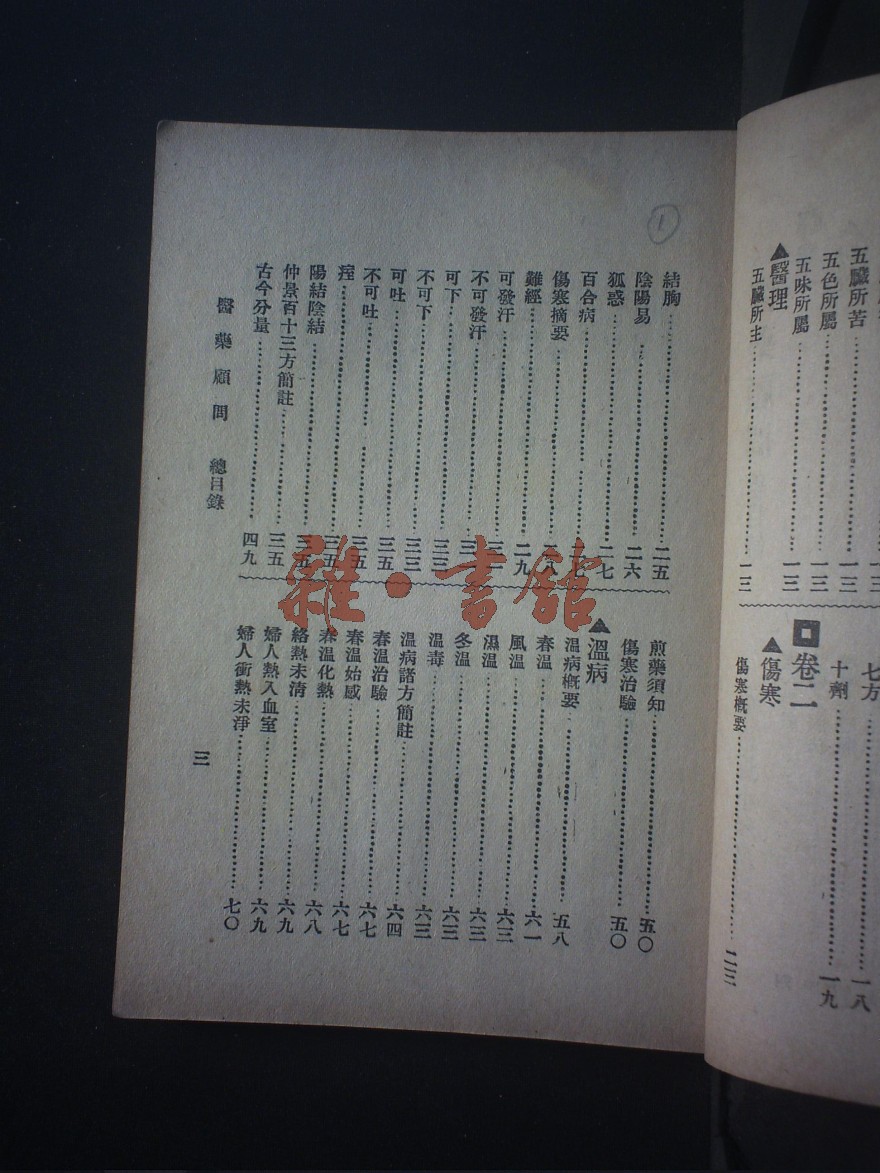 五臟所苦……一三
五色所屬……一三
五味所屬……一三
▲醫理
五臟所主……一三
七方……一八
十劑……一九
卷二
▲傷寒
傷寒概要……二三
1
結胸……二五
陰陽易……二六
狐惑……二七
百合病
傷寒摘要
難經……二九
可發汗
不可發汗
可下……三三
不可下……三三
可吐……三五
不可吐……三五
痓……三五
陽結陰結……三五
仲景百十三方簡註……三五
古今分量……四九
煎藥須知……五〇
傷寒治驗……五〇
▲溫病
溫病概要……五八
春溫……六一
風溫……六三
濕溫……六三
冬溫……六三
溫毒……六三
溫病諸方簡註……六四
春溫治驗……六七
春溫始感……六七
春溫化熱……六八
絡熱未清……六九
婦人熱入血室……六九
婦人衝熱未淨……七〇
醫藥顧問 總目錄
三
雜·書館